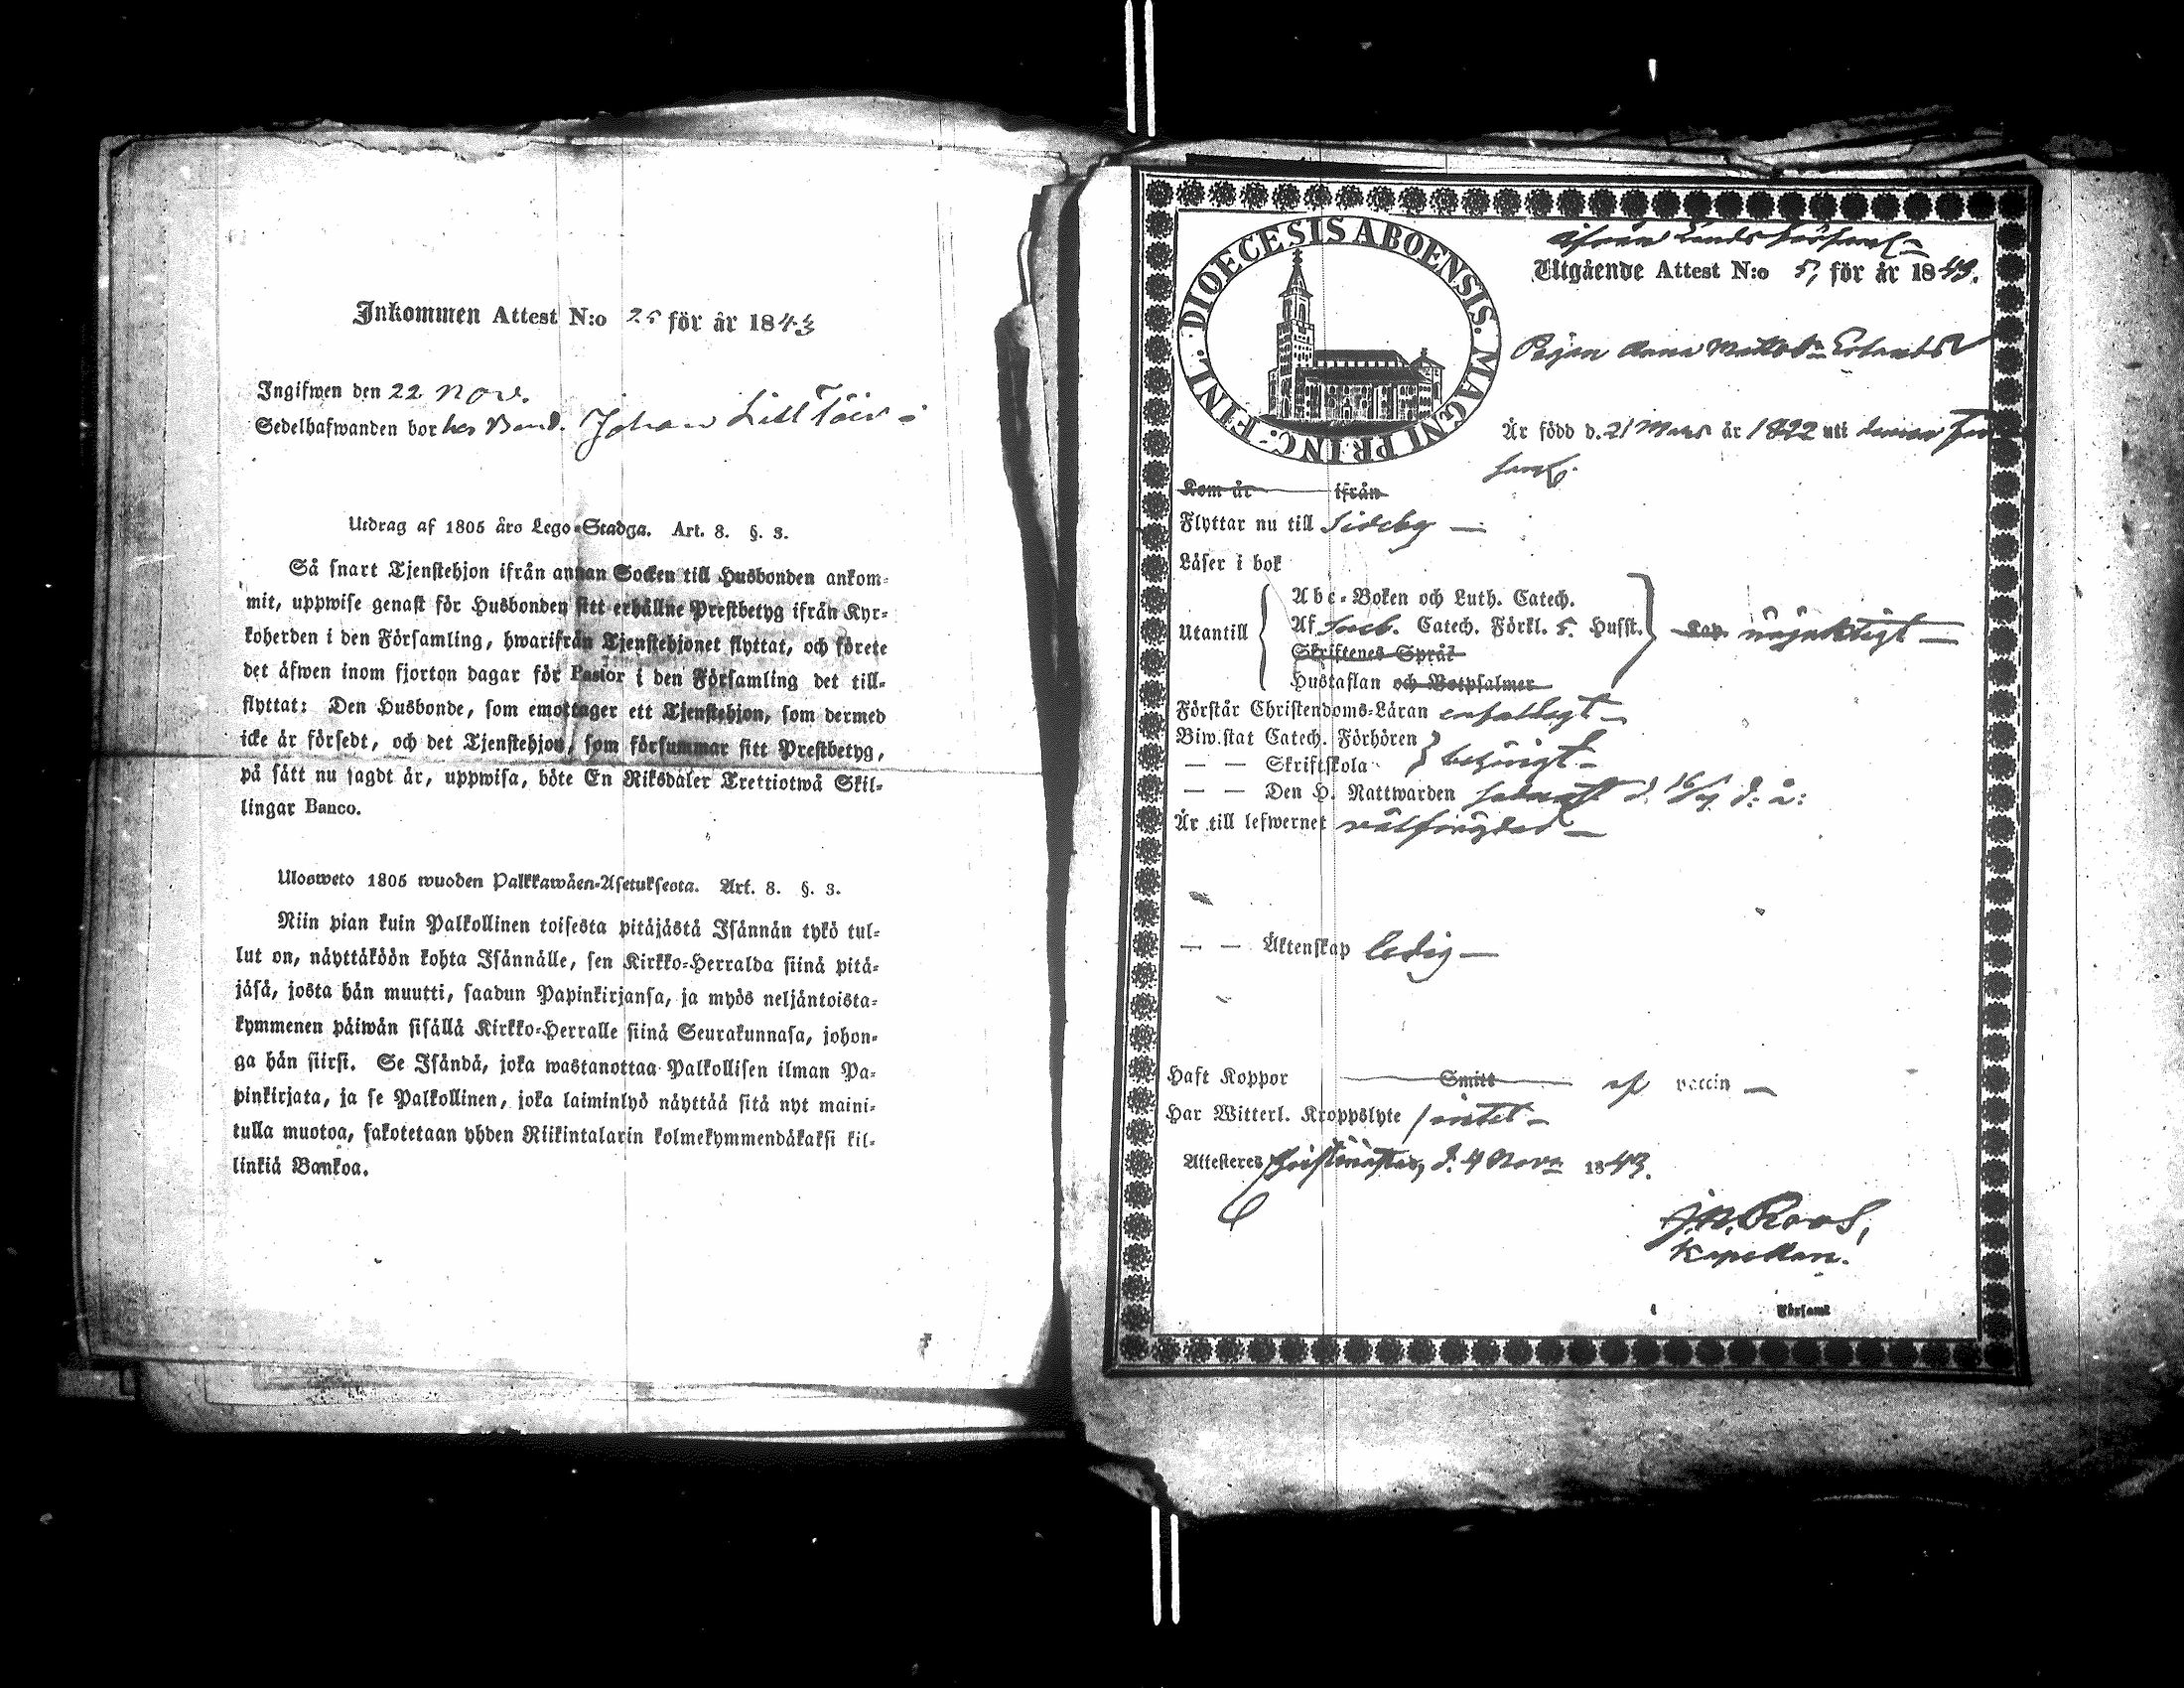 Inkommen Attest N:o 25 för år 1843
Ingifwen den 22 Nov.
Sedelhafwanden bor hos Bond. Johan Lill Töiv
Utdrag af 1805 års Lego-Stadga. Art. 8. §. 3.
Så snart Tjenstehjon ifrån annan Socken till Husbonden ankom-
mit, uppwise genast för Husbonden sitt erhållne Prestbetyg ifrån Kyr-
koherden i den Församling, hwarifrån Tjenstehjonet flyttat, och förete
det äfwen inom fjorton dagar för Pastor i den Församling det till-
flyttat: Den Husbonde, som emottager ett Tjenstehjon, som dermed
icke är försedt, och det Tjenstehjon, som försummar sitt Prestbetyg,
på sätt nu sagdt är, uppwisa, böte En Riksdaler Trettiotwå Skil-
lingar Banco.
Ulosweto 1805 wuoden Palkkawäen-Asetuksesta. Art. 8. §. 3.
Niin pian kuin Palkollinen toisesta pitäjästä Isännän tykö tul-
lut on, näyttäköön kohta Isännälle, sen Kirkko-Herralda siinä pitä-
jäsä, josta hän muutti, saadun Papinkirjansa, ja myös neljäntoista-
kymmenen päiwän sisällä Kirkko-Herralle siinä Seurakunnasa, johon-
ga hän siirsi. Se Isändä, joka wastanottaa Palkollisen ilman Pa-
pinkirjata, ja se Palkollinen, joka laiminlyö näyttää sitä nyt maini-
tulla muotoa, sakotetaan yhden Riikintalarin kolmekymmendäkaksi kil-
linkiä Bankoa.
DIOECESIS ABOENSIS. MAGNI PRINC. FINL.
ifrån Lands församl.
Utgående Attest N:o 5, för år 1843.
Pigan Anna Mattsdr
Är född d. 21 Mars år 1822 uti denna För
saml.
Kom år ifrån
Flyttar nu till Sideby
Läser i bok
Utantill
Abc-Boken och Luth. Catech.
Af Sveb. Catech. Förkl. 5. Husst.
Skriftenes Språk
Hustaflan och Botpsalmer
nöjaktigt
Förstår Christendoms-Läran enfaldigt
Biw.stat Catech. Förhören
— — Skriftskola
behörigt
— — Den H. Nattwarden sednast d. 16/7 d. å:
Är till lefwernet wälfrägdad
— — Äktenskap ledig
Haft Koppor Smitt af vaccin
Har Witterl. Kroppslyte intet
Attesteres Christinestad, d. 4 Novr 1843.
J. N. Roos,
Kapellan.
i Församl